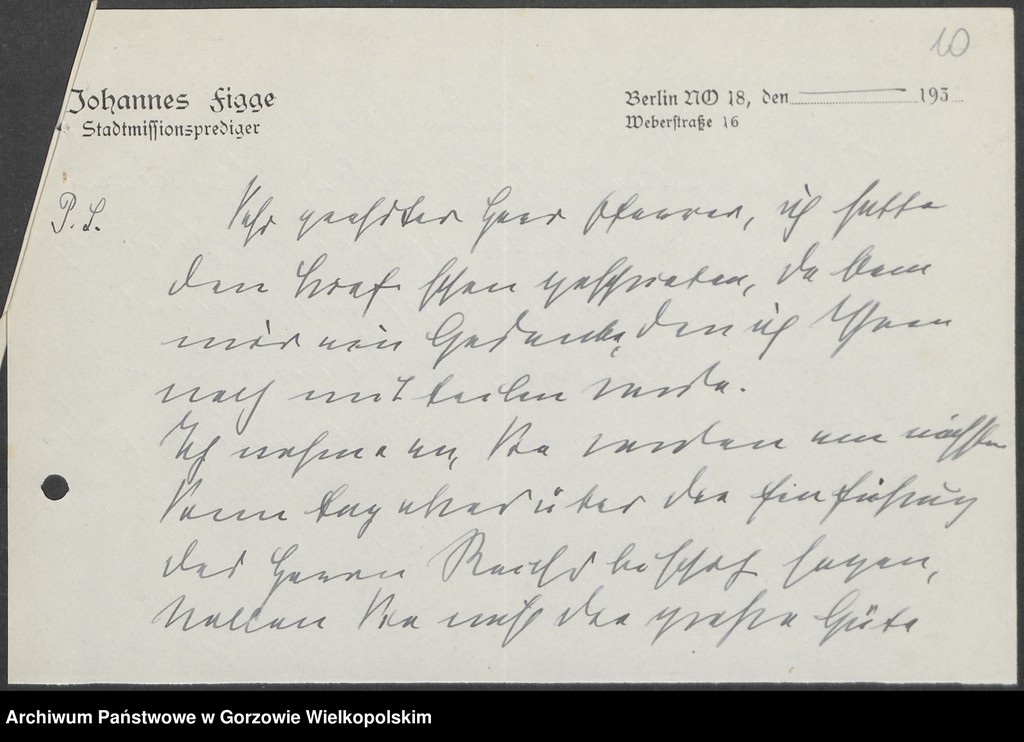 10
Johannes Figge
Stadtmissionsprediger
Berlin NO 18, den 193
Weberstraße 16
P.S.
Sehr geehrter Herr Pfarrer, ich hatte
den Brief schon geschrieben, da kam
mir ein Gedanke, den ich Ihnen
noch mitteilen werde.
Ich nehme an, Sie werden am nächsten
Sonntag etwas über die Einführung
des Herrn Reichsbischof sagen,
wollen Sie nicht die große Güte
Archiwum Państwowe w Gorzowie Wielkopolskim